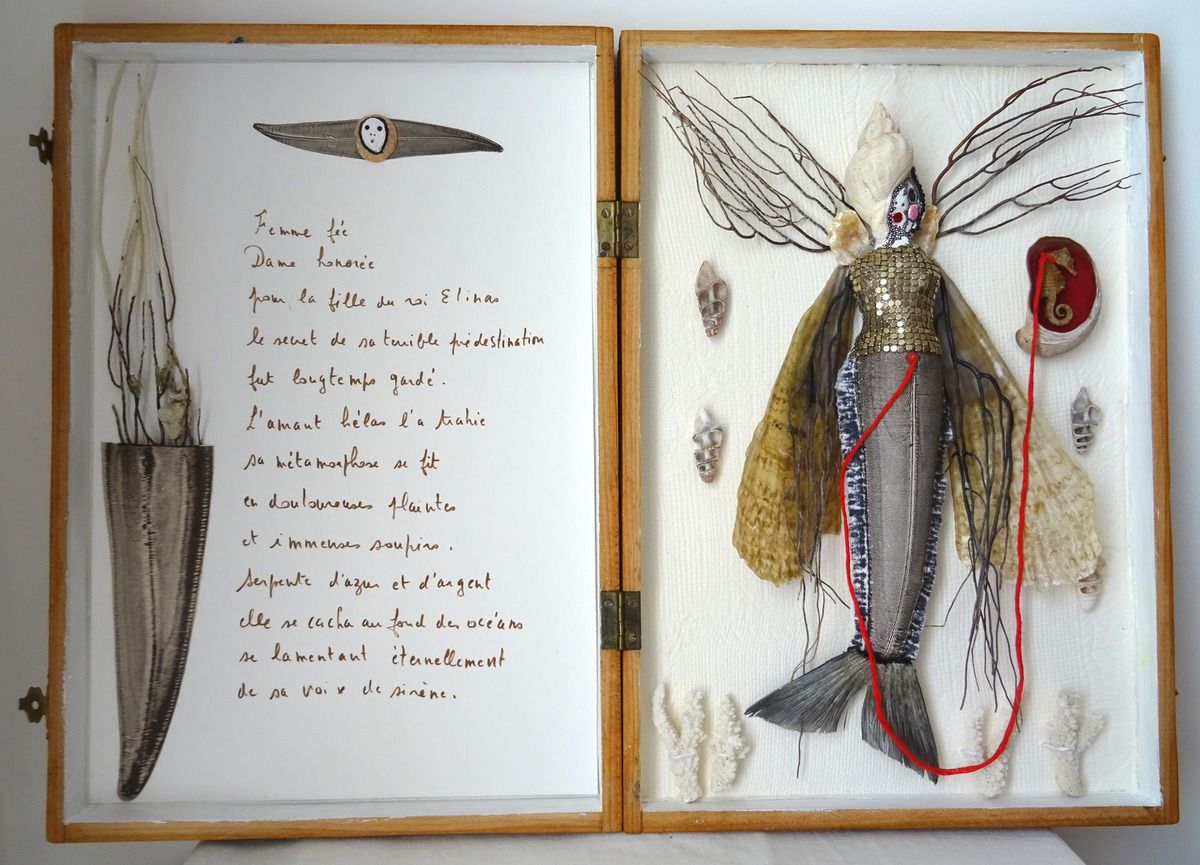 Femme fée
Dame honorée
pour la fille du roi Elinas
le secret de sa terrible prédestination
fut longtemps gardé.
L'amant hélas l'a trahie
sa métamorphose se fit
en douloureuses plaintes
et immenses soupirs.
Serpente d'azur et d'argent
elle se cacha au fond des océans
se lamentant éternellement
de sa voix de sirène.